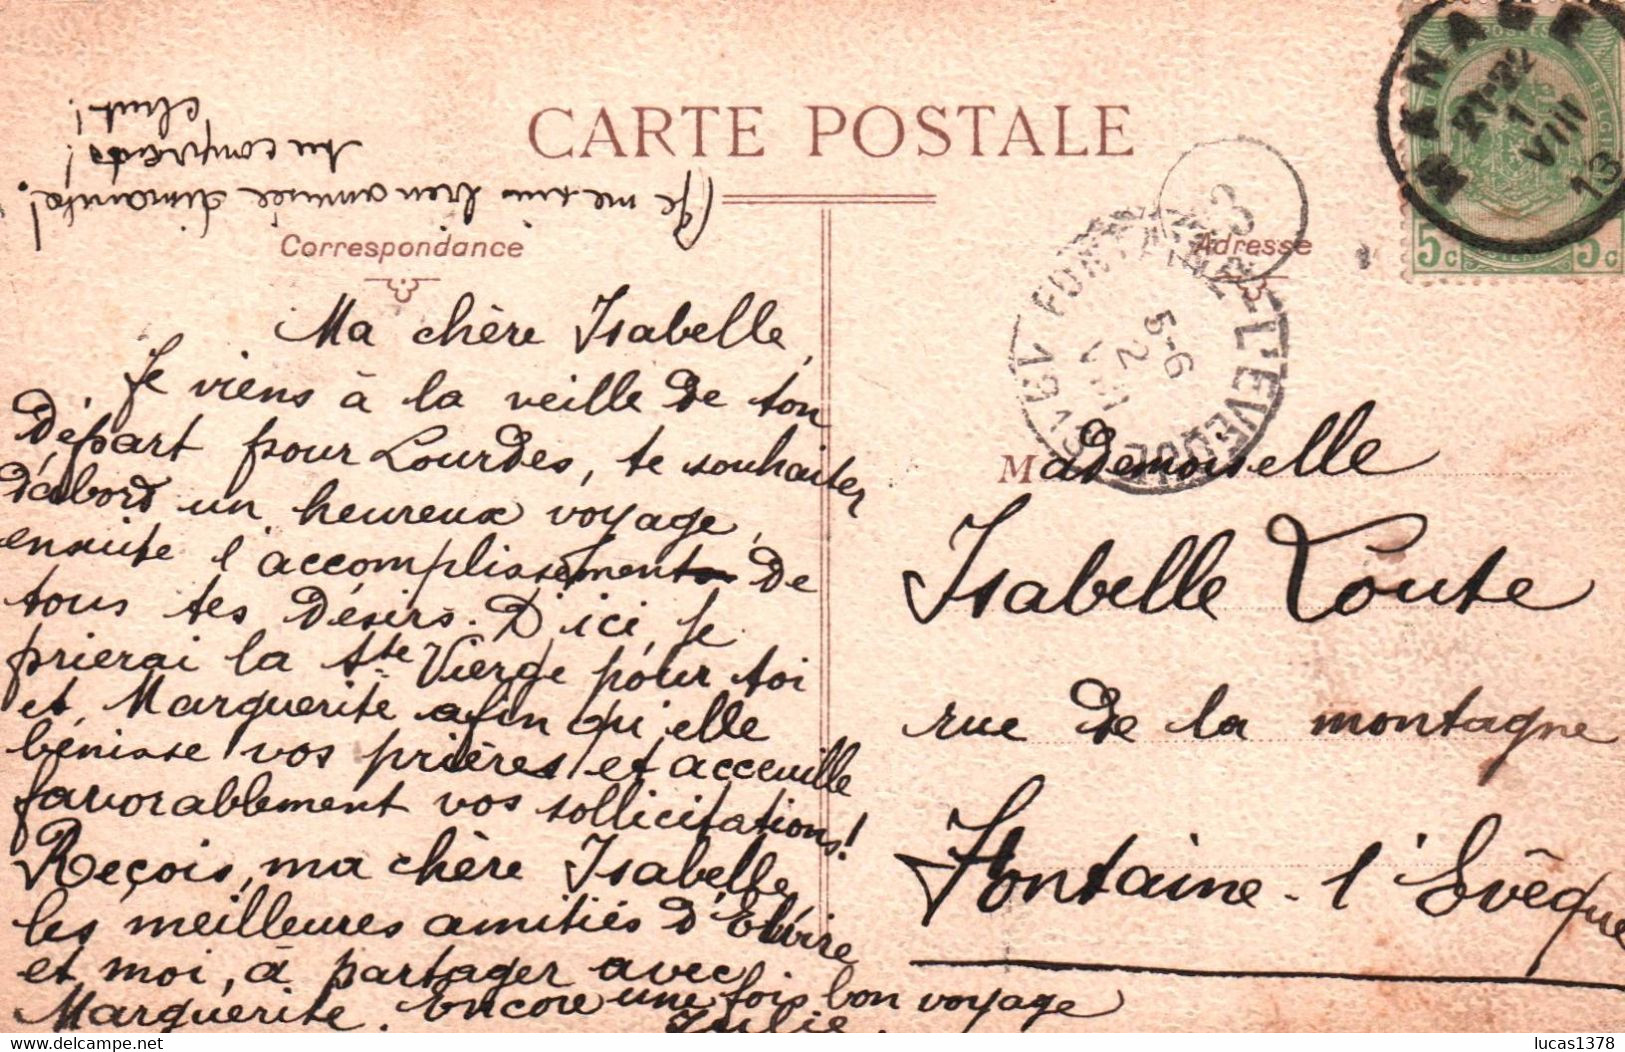 CARTE POSTALE
(Je me suis bien amusée dimanche!
tu comprends!
chut!
Correspondance
Adresse
MANAGE
21-22
1
VIII
13
5c 5c
3
FONTAINE-L'EVEQUE
5-6
2
VIII
1913
Ma chère Isabelle,
Je viens à la veille de ton
départ pour Lourdes, te souhaiter
d'abord un heureux voyage,
ensuite l'accomplissement de
tous tes désirs. D'ici, je
prierai la Ste Vierge pour toi
et Marguerite afin qu'elle
bénisse vos prières et acceuille
favorablement vos sollicitations!
Reçois, ma chère Isabelle,
les meilleures amitiés d'Elvire
et moi, à partager avec
Marguerite. Encore une fois bon voyage
Julie.
Mademoiselle
Isabelle Toute
rue de la montagne
Fontaine-l'Evêque
delcampe.net
lucas1378